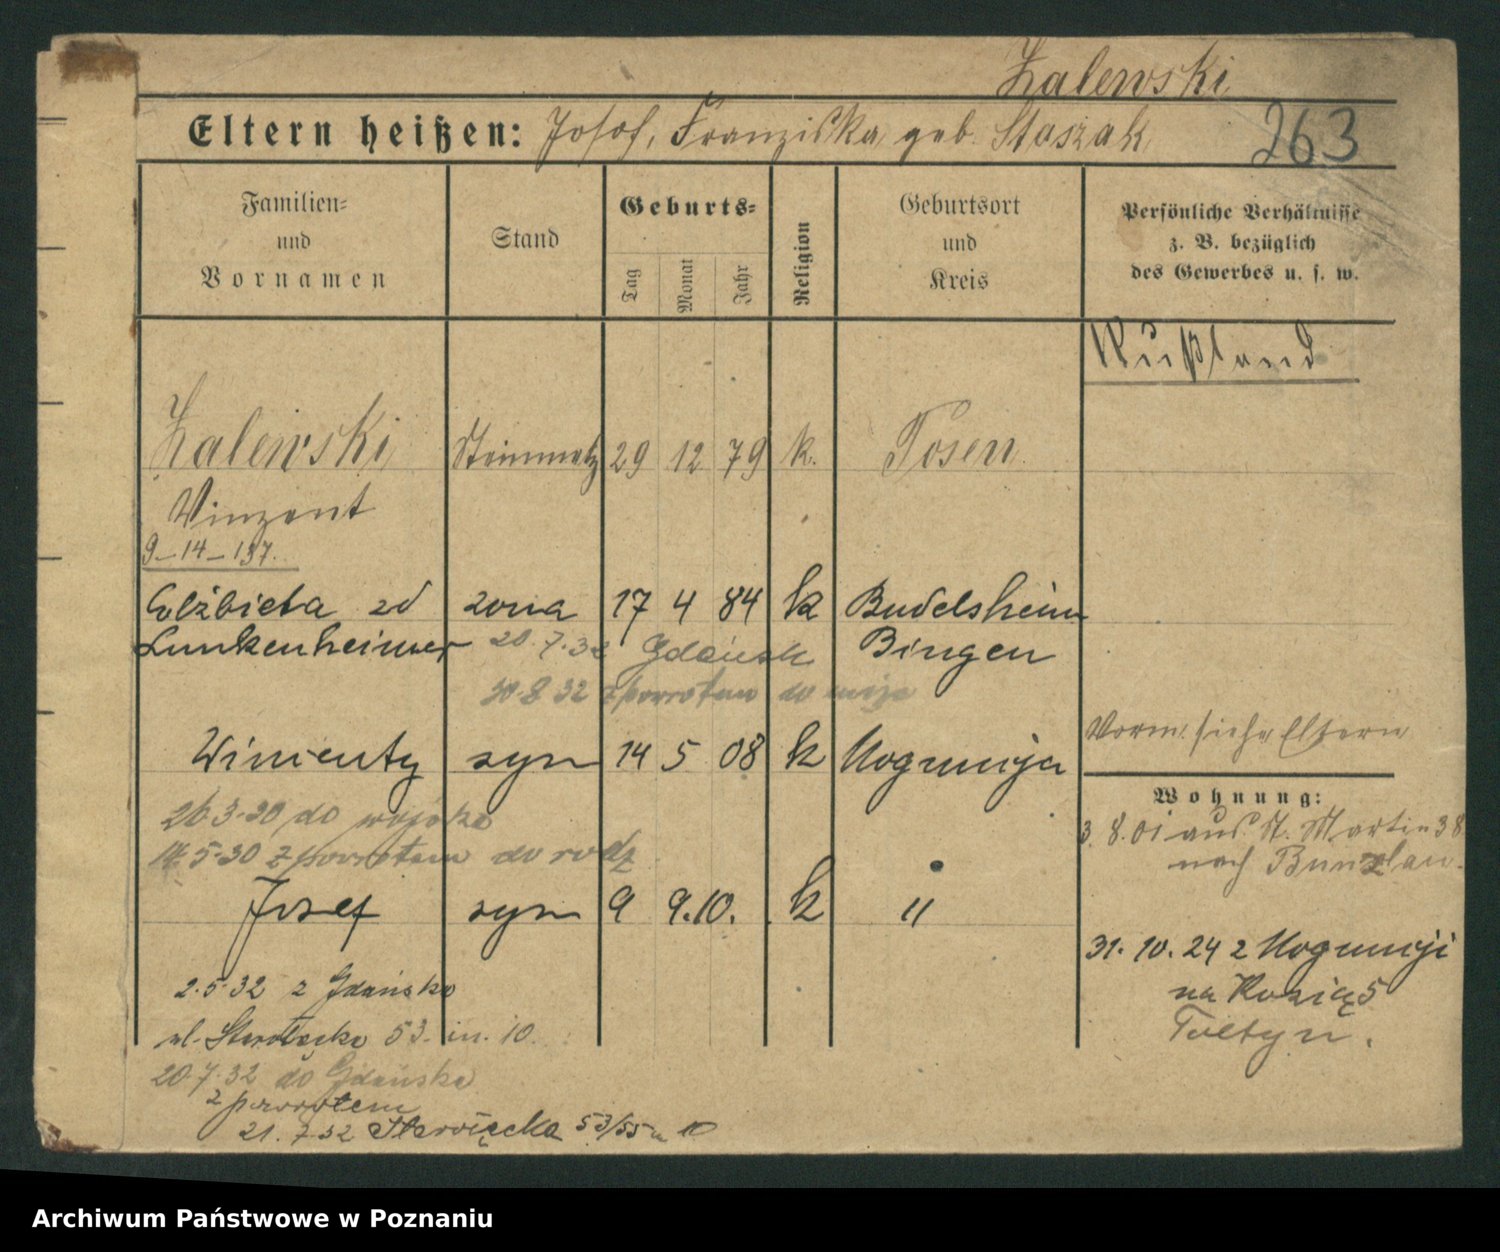 Zalewski
Eltern heißen: Josef, Franziska geb. Staszak
263
Familien-
und
Vornamen
Stand
Geburts-
Tag
Monat
Jahr
Religion
Geburtsort
und
Kreis
Persönliche Verhältnisse
z. B. bezüglich
des Gewerbes u. s. w.
Rußland
Zalewski Steinmetz 29 12 79 k. Posen
Vinzent
9-14-137.
Elżbieta zd żona 17 4 84 k Budelsheim
Lunkenheimer 20.7.32 Gdańsk Bingen
30 8 32 z powrotem do
Vorm. siehe Eltern
Wincenty syn 14 5 08 k Moguncja
Wohnung:
26.3.30 do wojska
3 8.01 aus St. Martin 38
nach Bunzlau.
14.5.30 z powrotem do rodz
Josef syn 9 9. 10. k "
31. 10. 24 z Moguncji
na 5
2.5.32 z Gdańska
ul. 53. m. 10.
20.7.32 do Gdańska
z powrotem
21. 7 32 53/55 m 10